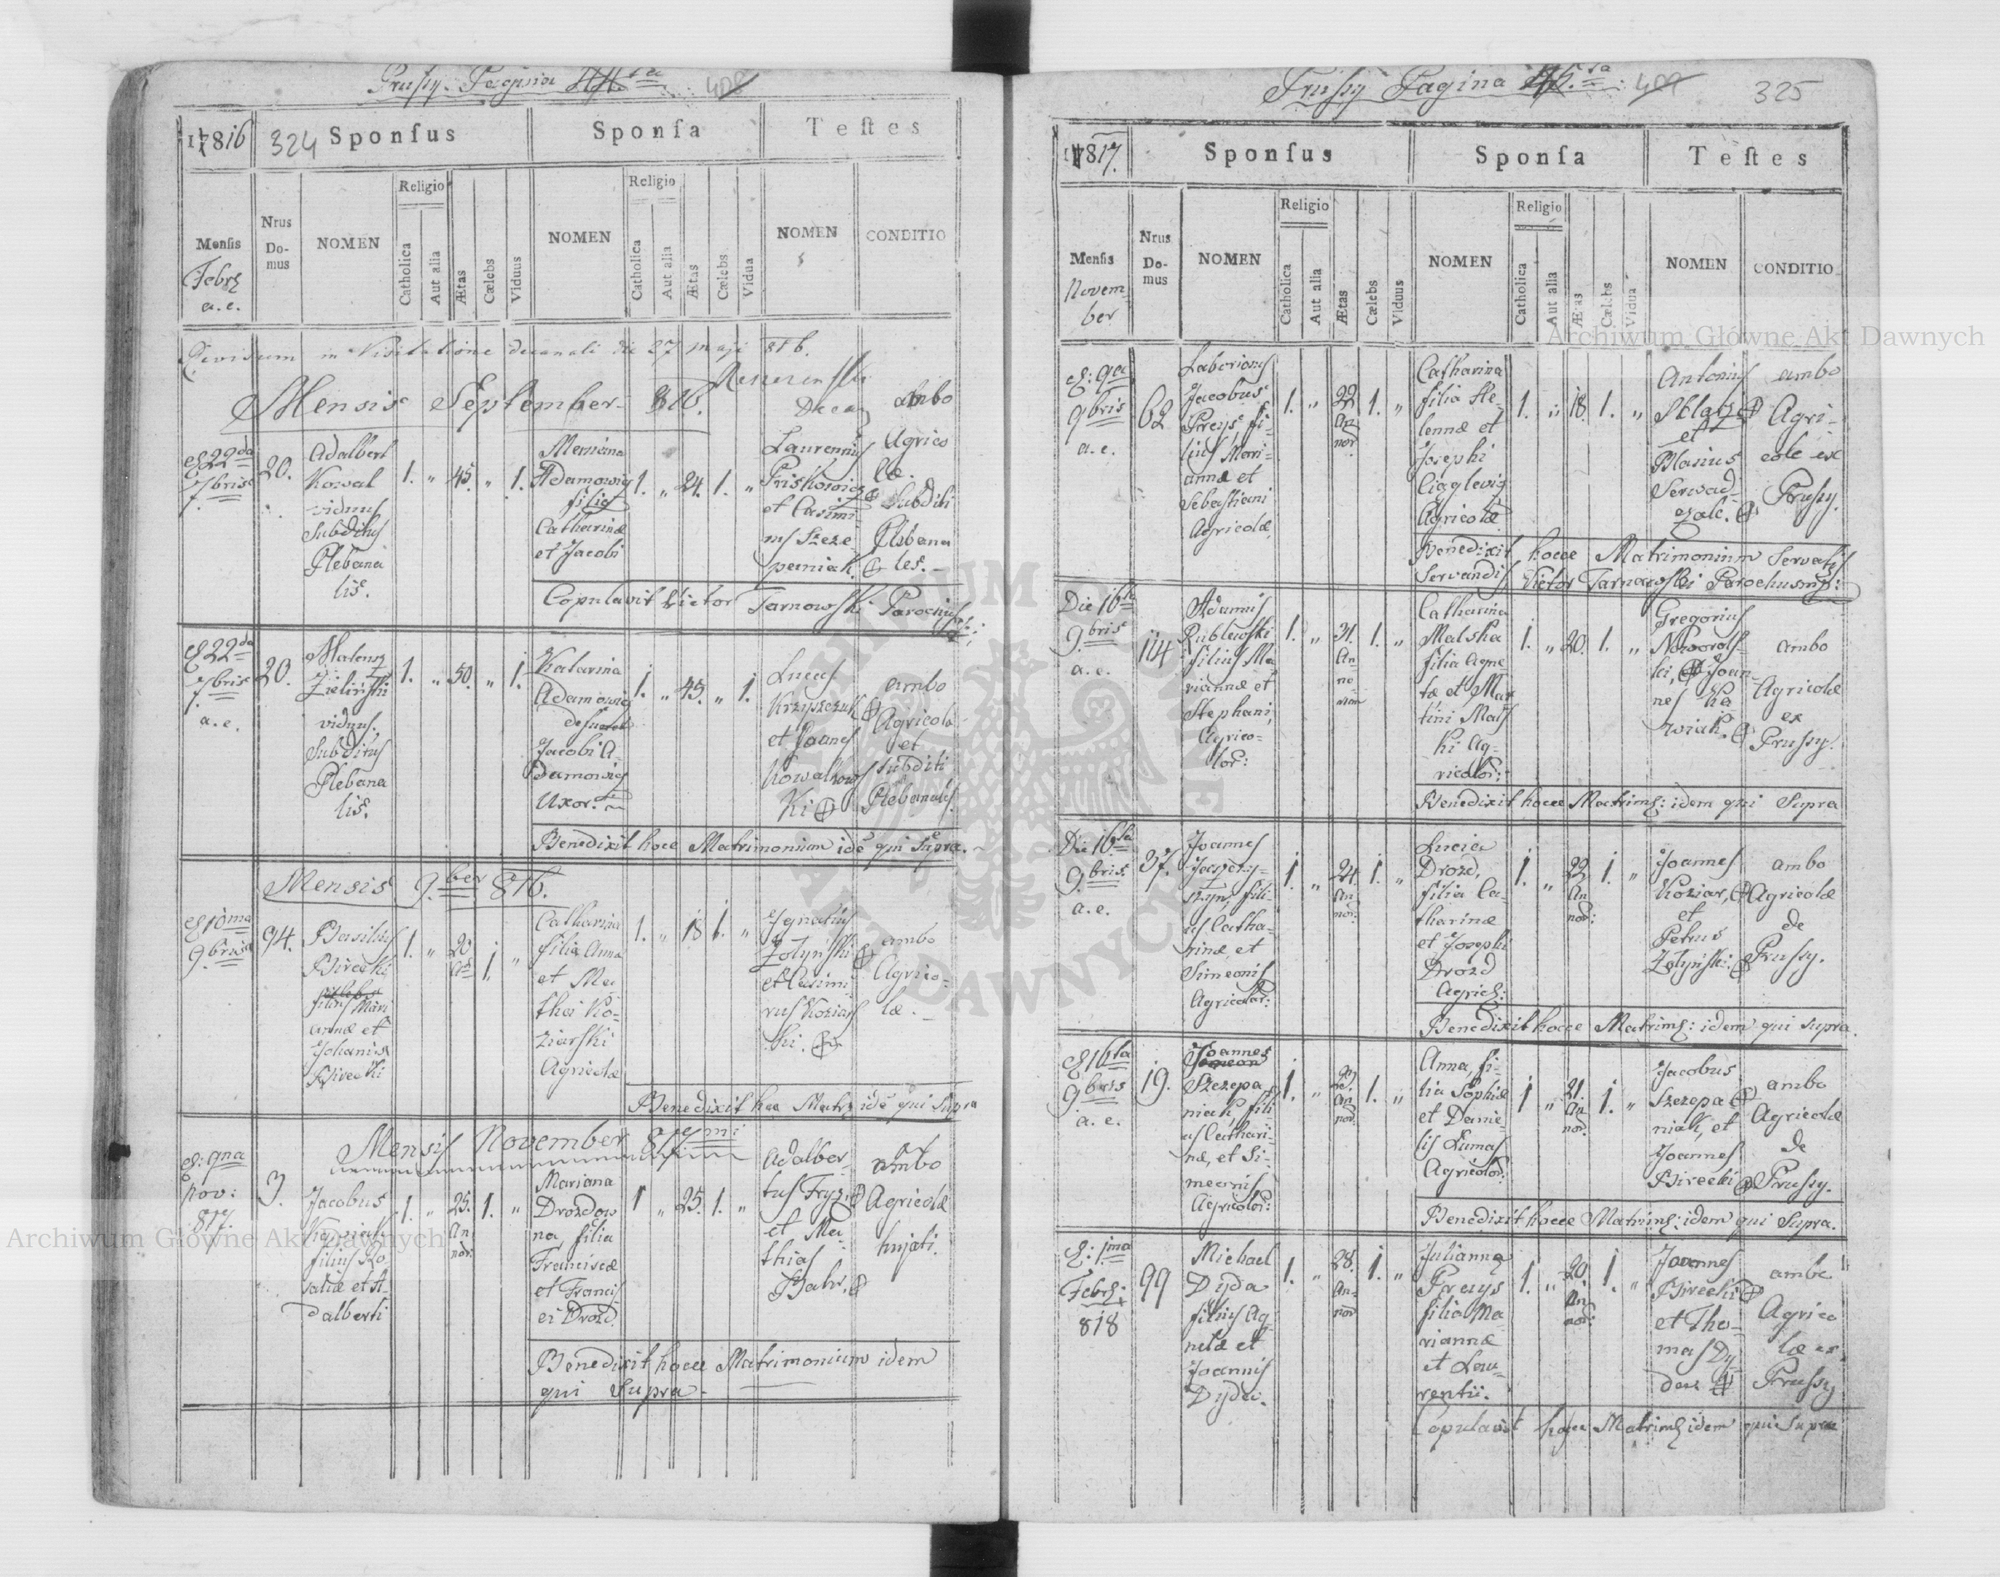 Prussy Pagina
408
1816
324
Sponsus
Sponsa
Testes
Mensis
Febr
a. e.
Nrus Do-mus
NOMEN
Religio
Catholica
Aut alia
Ætas
Cœlebs
Viduus
NOMEN
Religio
Catholica
Aut alia
Ætas
Cœlebs
Vidua
NOMEN
CONDITIO
Revisum in Visitatione decanali die 27 maji 816.
Decan
Mensis September 816.
22da
7bris
20.
Adalbert
Kowal
viduus
Subditus
Plebana
lis.
1.
„
45.
„
1.
Adamowicz
filia
Catharinæ
et Jacobi
1.
„
24.
1.
„
Laurentius
et Casimi-
rus Szcze-
paniak.
Ambo
Agrico
læ.
Subditi
Plebana
les.
Copulavit Victor Tarnowski Parochus
22da
7bris
a. e.
20.
Zieliński
viduus.
Subditus
Plebana
lis.
1.
„
50.
„
1.
Katarina
Adamowicz
defuncti
Jacobi A-
damowicz
Uxor.
1.
„
45.
„
1.
Lucas
Krzyszczuk
et Joannes
Kowalkows
Ki
ambo
Agricolæ
et
Subditi
Plebanales.
Benedixit hocce Matrimonium idem qui Supra.
Mensis 9ber 816.
10ma
9bris
94.
Basilius
Birecki
filius Mari
annæ et
Johannis
Birecki
1.
„
20
1.
„
Catharina
filia Anna
et Ma
thei Ko-
ziarski
Agricolæ
1.
„
18
1.
„
Ignatius
Zołyński
et Casimi-
rus Koziars
ki.
ambo
Agrico-
læ.
Benedixit hoc Matr idem qui Supra
Mensis November 817mi
9na
Nov:
817.
3.
Jacobus
filius Ro
saliæ et A-
dalberti
1.
„
25.
An
nor:
1.
„
Mariana
Drozdow
na, filia
Franciscæ
et Francis
ci Drozd.
1
„
25.
1.
„
Adalber-
tus Fryz,
et Ma-
thias
Bahr,
ambo
Agricolæ
hujati.
Benedixit hocce Matrimonium idem
qui Supra.
Prussy Pagina
409
325
1817.
Sponsus
Sponsa
Testes
Mensis
Novem-
ber
Nrus Do-mus
NOMEN
Religio
Catholica
Aut alia
Ætas
Cœlebs
Viduus
NOMEN
Religio
Catholica
Aut alia
Ætas
Cœlebs
Vidua
NOMEN
CONDITIO
9na
9bris
a. e.
62
Jacobus
Preys fi-
lius Mari-
annæ et
Sebastiani
Agricolæ,
1.
„
22
An
nor.
1.
„
Catharina
filia He-
lennæ et
Josephi
Ciąglewicz
Agricolæ
1.
„
18.
1.
„
Antonius
et
Blasius
Serwad-
czak.
ambo
Agri-
colæ ex
Prussy.
Benedixit hocce Matrimonium Servatis
Servandis Victor Tarnowski Parochus
Die 16ta
9bris
a. e.
114
Adamus
Rublewski
filius Ma-
riannæ et
Stephani,
Agrico-
lor:
1.
„
31.
An
no
1.
„
Catharina
Malska
filia Agne
tæ et Mar
tini Mals
ki Ag-
ricolor:
1.
„
20.
1.
„
Gregorius
Nawrols-
ki, et Joan-
nes Ka
wiak.
ambo
Agricolæ
ex
Prussy.
Benedixit hocce Matrim: idem qui Supra
Die 16ta
9bris
a. e.
37.
Joannes
fili-
us Catha-
rinæ, et
Simeonis
Agricolar:
1.
„
24.
An
nor:
1.
„
Lucia
Drozd,
filia Ca-
tharinæ
et Josephi
Drozd
Agric:
1.
„
22
An
nor:
1.
„
Joannes
Koziar,
et
Petrus
Zołyński:
ambo
Agricolæ
de
Prussy.
Benedixit hocce Matrim: idem qui supra.
16ta
9bris
a. e.
19.
Joannes
Szczepa
niak, fili-
us Cathari-
næ, et Si-
meonis
Agricolor:
1.
„
An
nor
1.
„
Anna, fi-
lia Sophiæ
et Danie-
lis Lumas
Agricolor:
1
„
21.
An
nor.
1.
„
Jacobus
Szczepa
niak, et
Joannes
Birecki
ambo
Agricolæ
de
Prussy.
Benedixit hocce Matrim: idem qui supra.
1ma
Febr:
818
99
Michael
Dyda
filius Ag-
netæ et
Joannis
Dydæ.
1.
„
28.
An-
nor
1.
„
Julianna
Preuys
filia Ma-
riannæ
et Lau-
rentii.
1.
„
20.
An
nor:
1.
„
Joannes
Birecki
et Tho-
mas Dy
da
ambo
Agrico
læ ex
Prussy
Copulavit hocce Matrim idem qui Supra
Archiwum Główne Akt Dawnych
Archiwum Główne Akt Dawnych